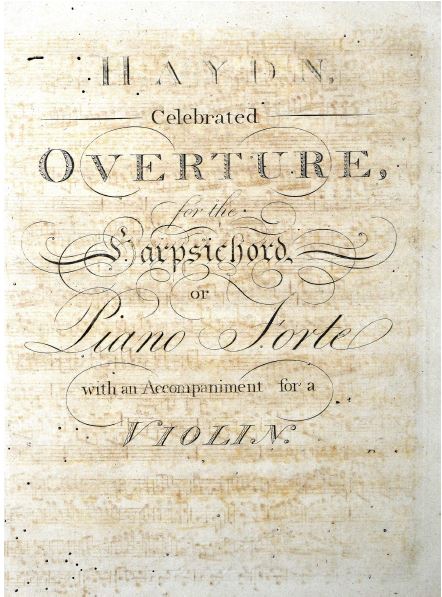 HAYDN,
Celebrated
OVERTURE,
for the
Harpsichord,
or
Piano Forte
with an Accompaniment for a
VIOLIN.